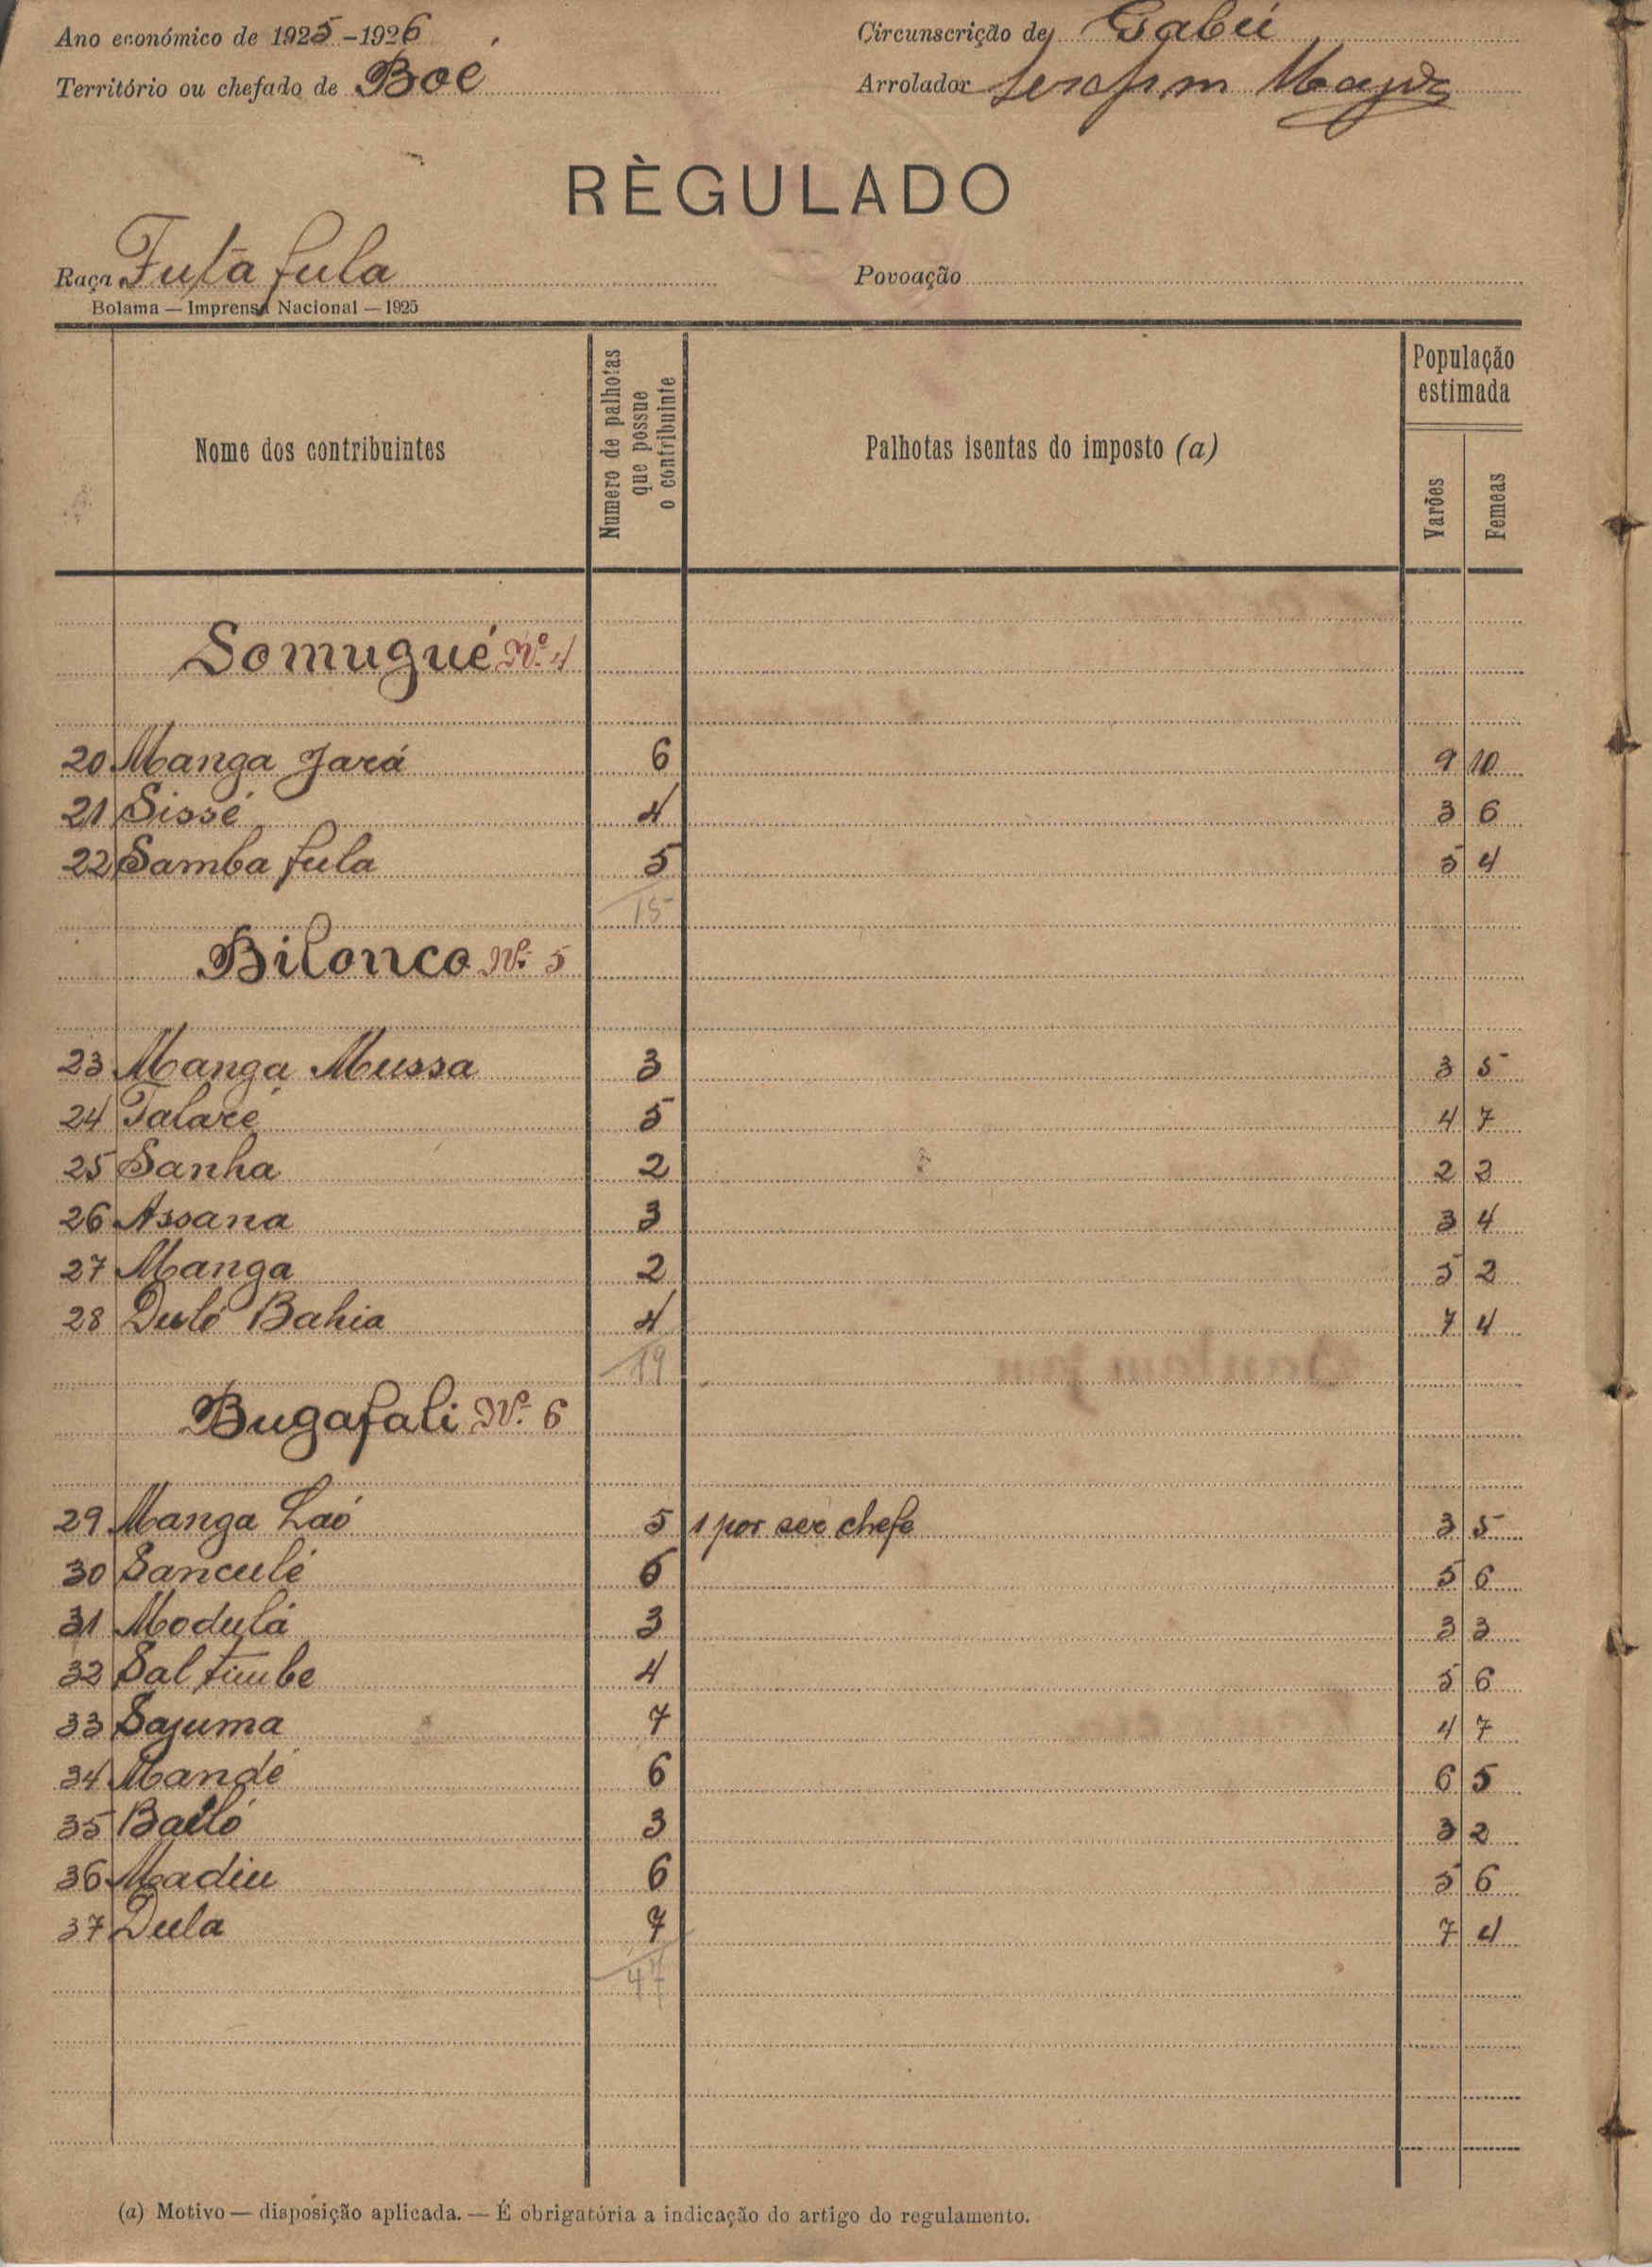 Ano económico de 1925-1926
Circunscrição de Gabú
Território ou chefado de Boé
Arrolador Serafim
RÈGULADO
Raça Futa fula
Povoação
Bolama — Imprensa Nacional — 1925
Nome dos contribuintes
Numero de palhotas que possue o contribuinte
Palhotas isentas do imposto (a)
População estimada
Varões
Femeas
Somugué Nº 4
20 Manga Jará 6 9 10
21 Sissé 4 3 6
22 Samba fula 5 5 4
15
Bilonco Nº 5
23 Manga Mussa 3 3 5
24 Talaré 5 4 7
25 Sanha 2 2 3
26 Assana 3 3 4
27 Manga 2 5 2
28 Duló Bahia 4 7 4
19
Bugafali Nº 6
29 Manga Laó 5 1 por ser chefe 3 5
30 Sanculé 6 5 6
31 Modulá 3 3 3
32 Saltimbe 4 5 6
33 Sajuma 7 4 7
34 Mandé 6 6 5
35 Bailó 3 3 2
36 Madiu 6 5 6
37 Dula 7 7 4
47
(a) Motivo — disposição aplicada. — É obrigatória a indicação do artigo do regulamento.